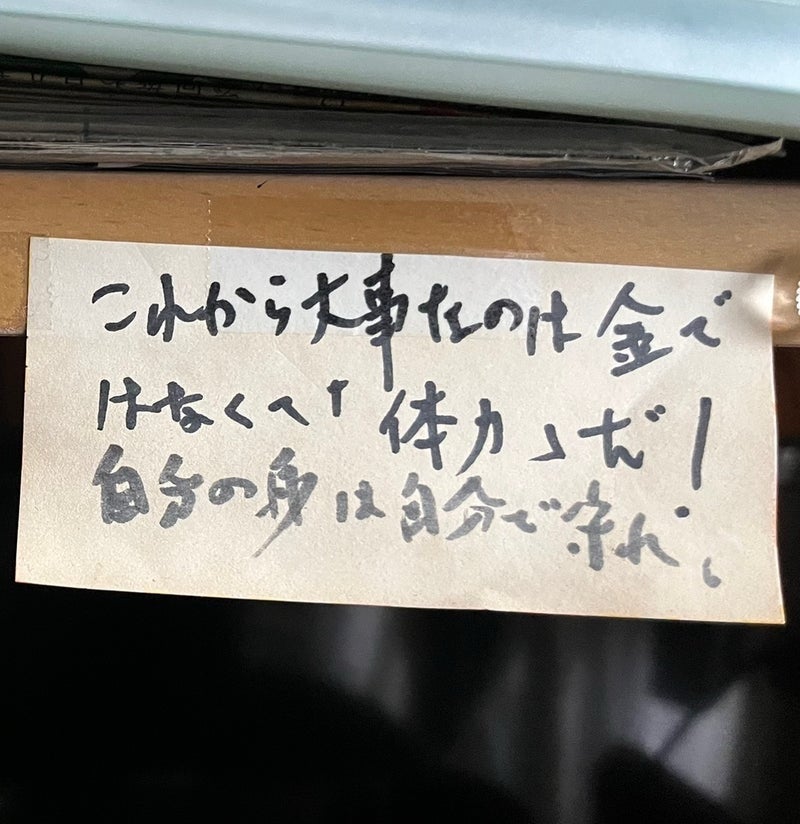 これから大事なのは金で
はなくて「体力」だ!
自分の身は自分で守れ。